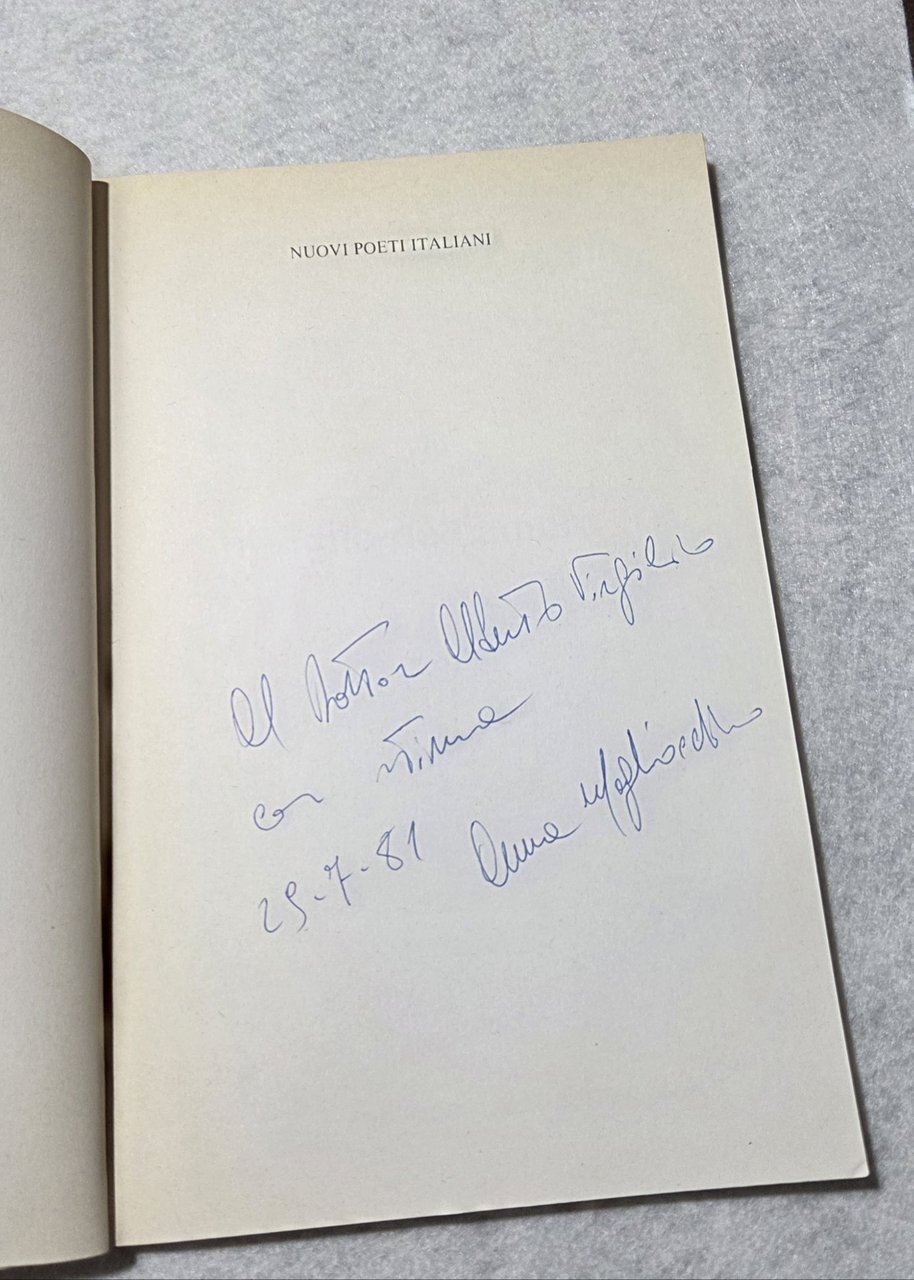 NUOVI POETI ITALIANI
Al Dottor Alberto Virgilio
con stima
29-7-81 Anna